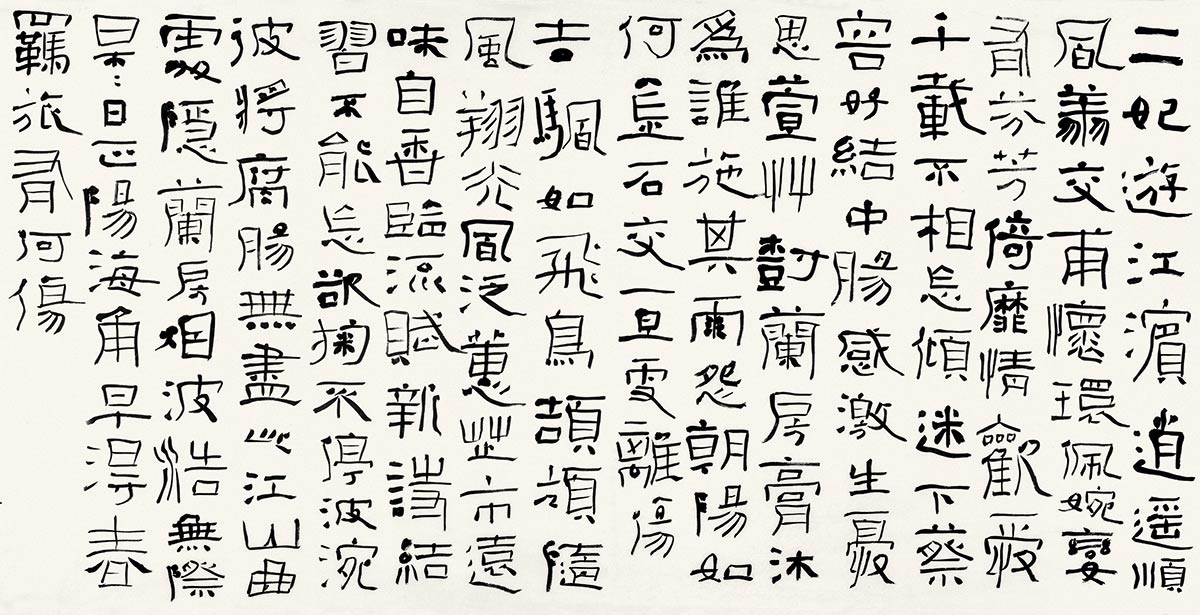 二妃遊江濱逍遥順
風翔交甫懷環佩婉孌
有芬芳倚靡情歡愛
千載不相忘傾迷下蔡
容好結中腸感激生憂
思萱艸樹蘭房膏沐
為誰施其雨怨朝陽如
何金石交一旦更離傷
吉騧如飛鳥頡頏隨
風翔光風泛蕙芷市遠
味自香臨流賦新詩結
習不能忘欲掬不停波涴
彼將腐腸無盡此江山曲
霧隱蘭房烟波浩無際
杲杲日正陽海角早得春
羈旅有何傷